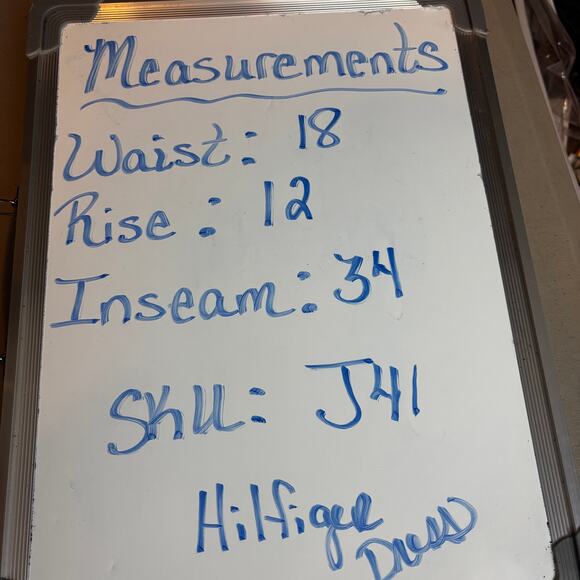 Measurements
Waist: 18
Rise: 12
Inseam: 34
Sku: J41
Hilfiger
Dress